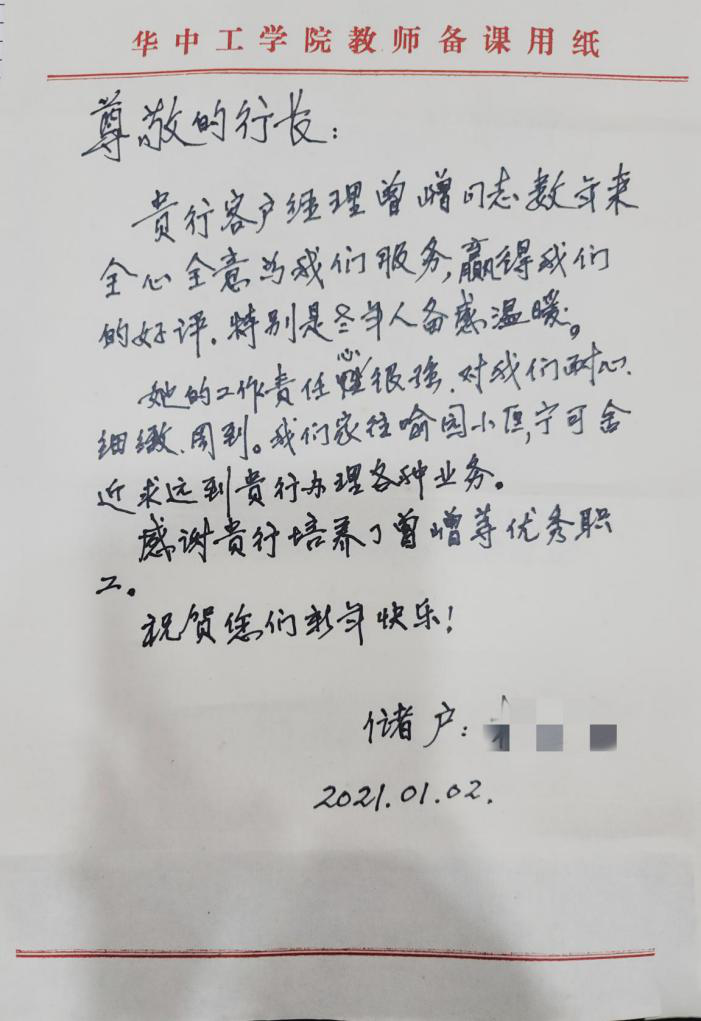 华中工学院教师备课用纸
尊敬的行长：
贵行客户经理曾嶒同志数年来
全心全意为我们服务,赢得我们
的好评.特别是老年人备感温暖。
她的工作责任心很强.对我们耐心.
细致.周到。我们家住喻园小区,宁可舍
近求远到贵行办理各种业务。
感谢贵行培养了曾嶒等优秀职
工。
祝贺您们新年快乐!
储户：
2021.01.02.